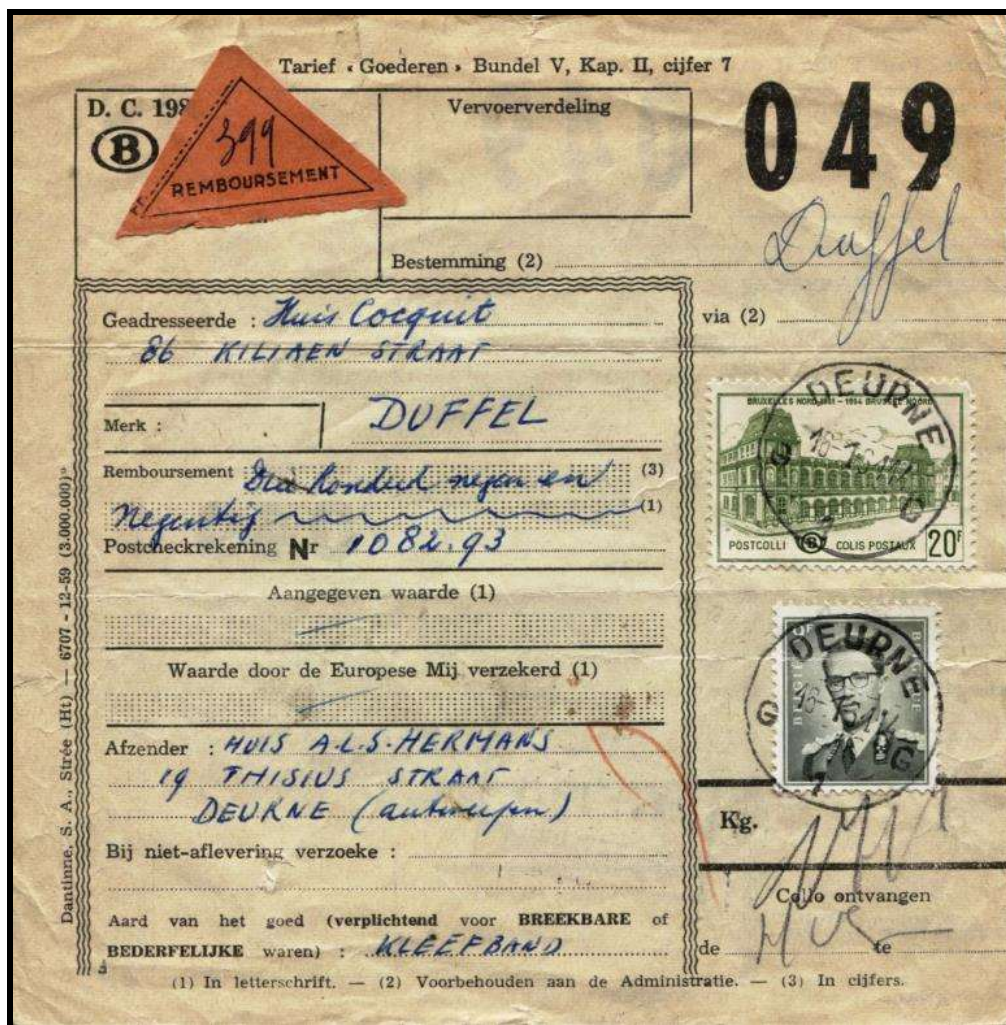 Tarief « Goederen » Bundel V, Kap. II, cijfer 7
D. C. 198
B
399
REMBOURSEMENT
Vervoerverdeling
049
Bestemming (2) Duffel
via (2)
Geadresseerde : Huis Cocquit
86 KILIAEN STRAAT
Merk : DUFFEL
Remboursement Drie honderd negen en (3)
negentig (1)
Postcheckrekening Nr 1082.93
Aangegeven waarde (1)
Waarde door de Europese Mij verzekerd (1)
Afzender : HUIS A.L.S. HERMANS
19 THISIUS STRAAT
DEURNE (antwerpen)
Bij niet-aflevering verzoeke :
Aard van het goed (verplichtend voor BREEKBARE of
BEDERFELIJKE waren) : KLEEFBAND
(1) In letterschrift. — (2) Voorbehouden aan de Administratie. — (3) In cijfers.
Dantinne, S. A., Strée (Ht) — 6707 - 12-59 (3.000.000)
BRUXELLES NORD 1841 - 1954 BRUSSEL NOORD
POSTCOLLI B COLIS POSTAUX 20F
DEURNE
G G
1
DEURNE
G G
1
Kg.
Collo ontvangen
de te